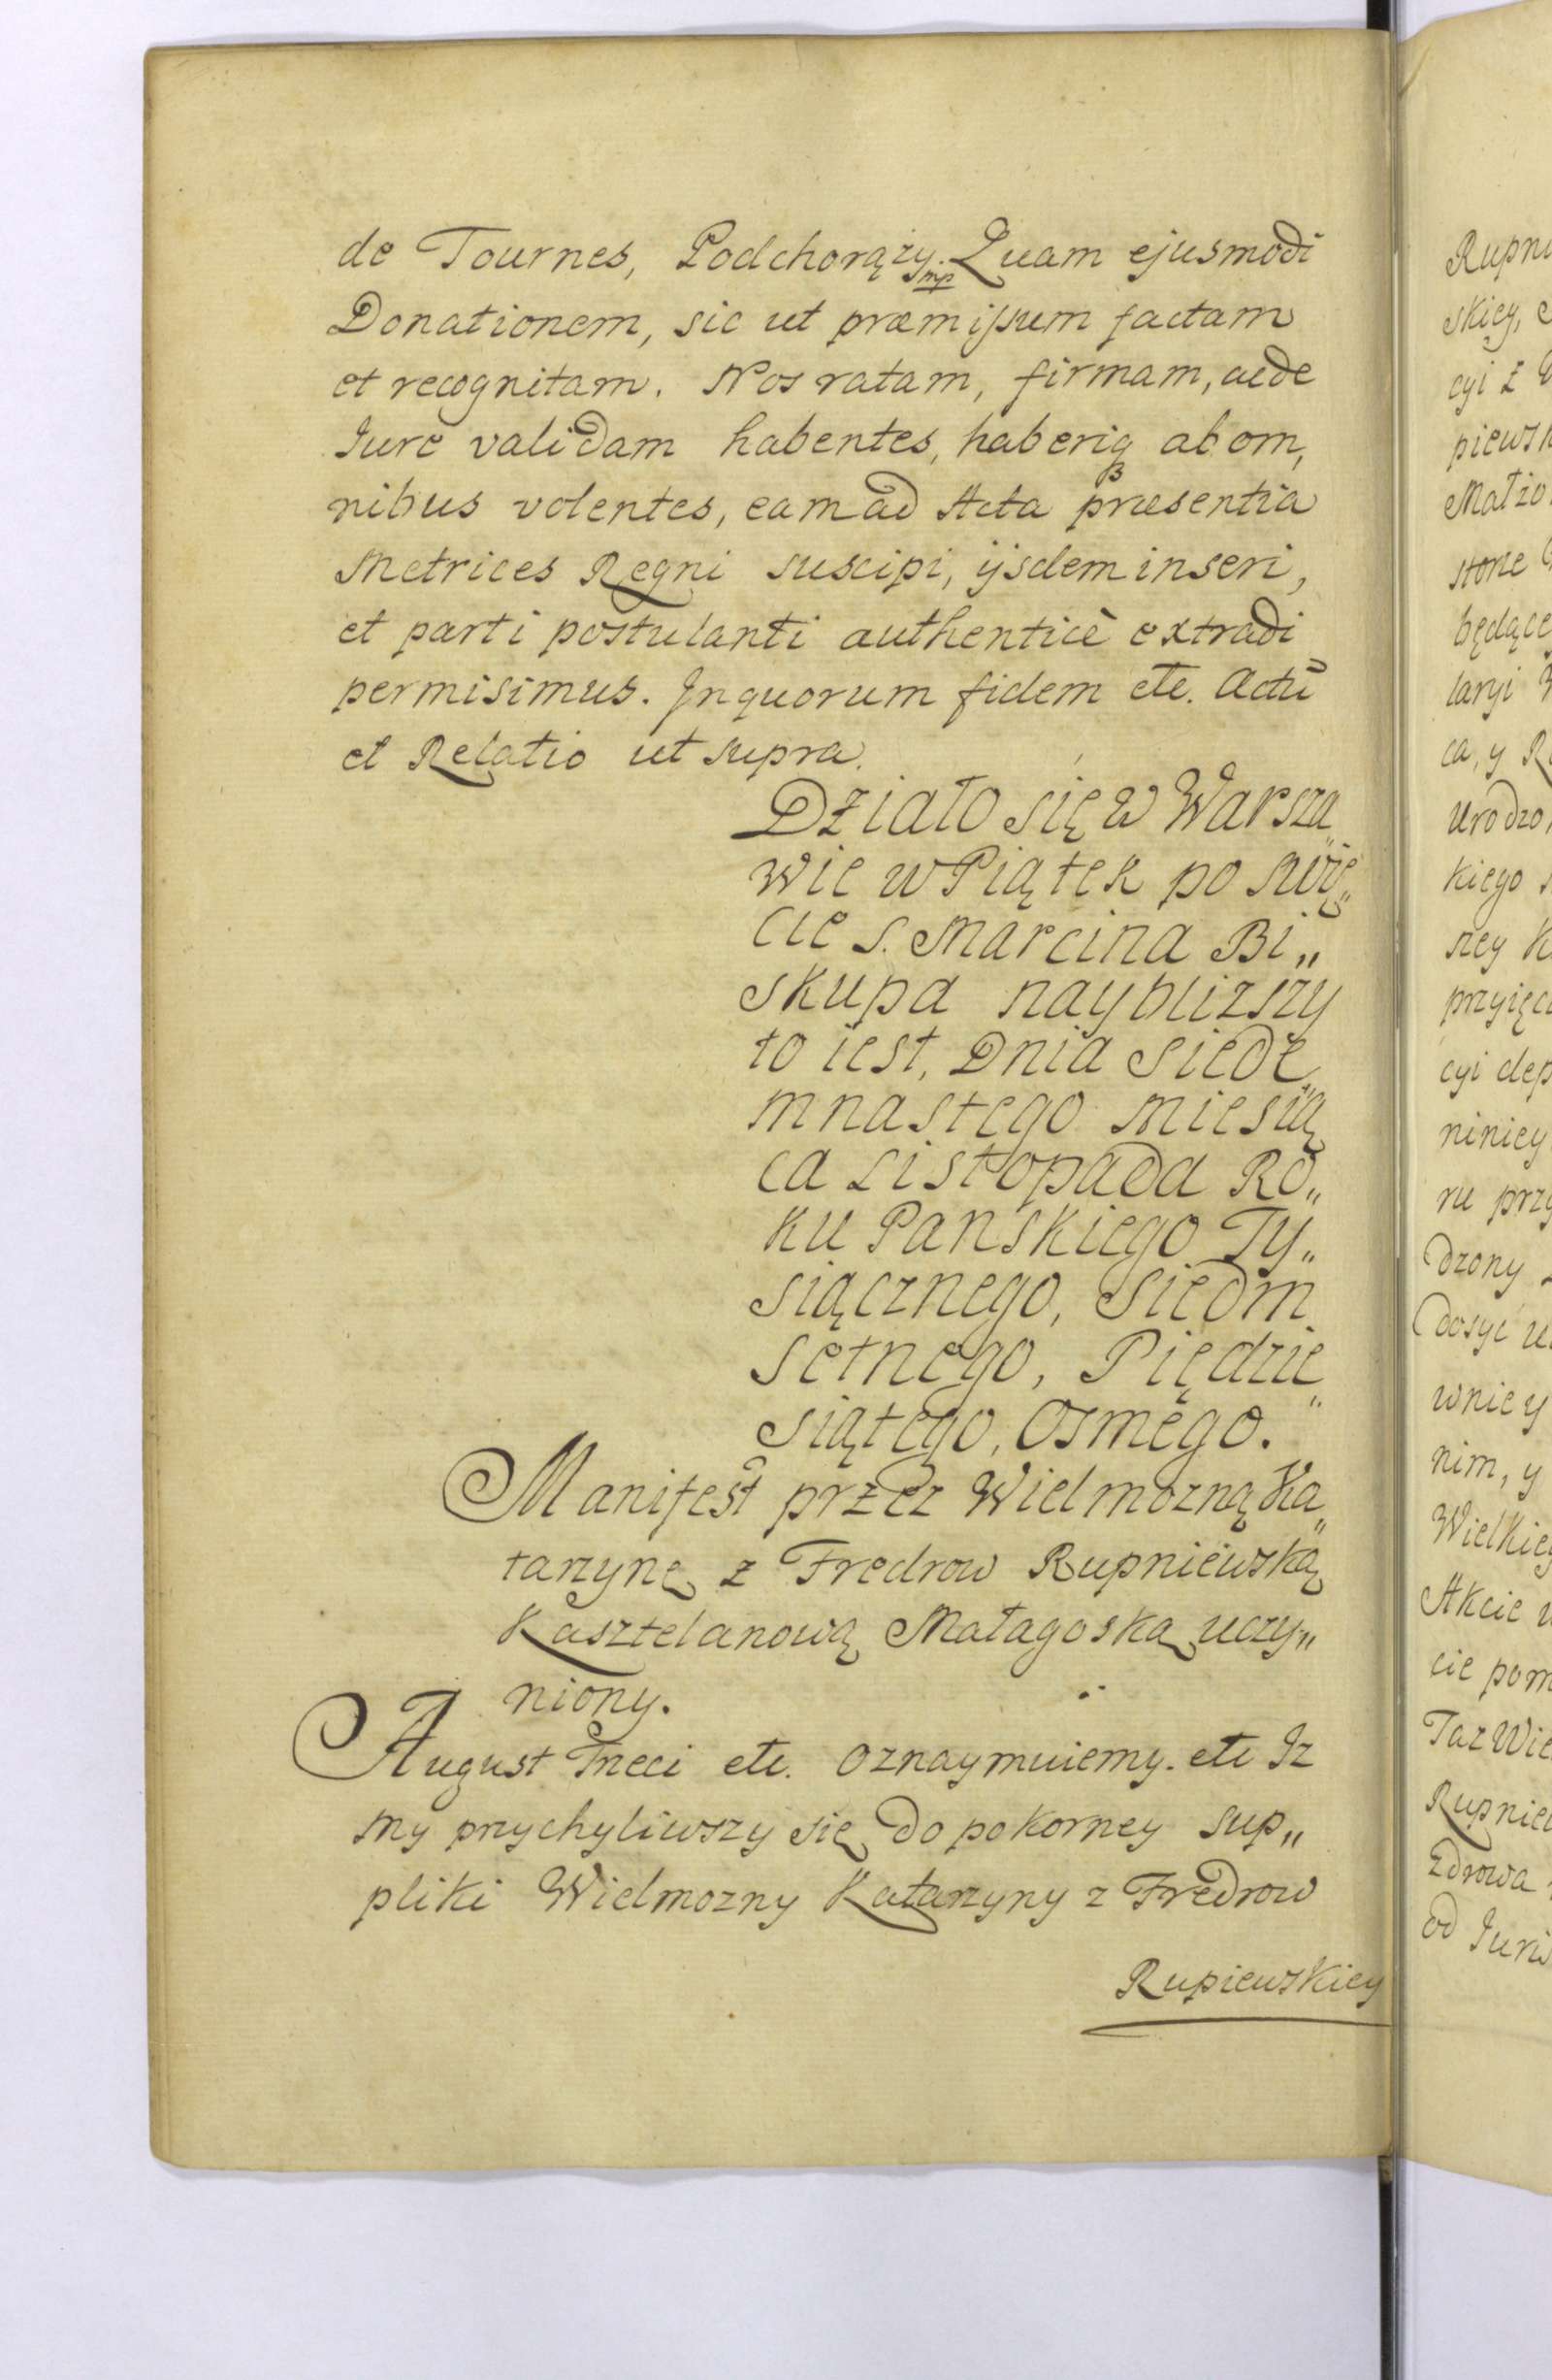 de Tournes, Podchorąży mp. Quam ejusmodi
Donationem, sic ut præmissum factam
et recognitam. Nos ratam, firmam, acde
Iure validam habentes, haberiq3 ab om,
nibus volentes, eam ad Acta præsentia
Metrices Regni suscipi, ijsdem inseri,
et parti postulanti authenticè extradi
permisimus. In quorum fidem etc. Actū
et Relatio ut supra.
Działo się w Warsza„
wie w Piątek po świę„
cie S. Marcina Bi„
skupa nayblizszy
to iest, Dnia Siede„
mnastego Miesią„
ca Listopada Ro„
ku Panskiego Ty„
siącznego, Siedm
setnego, Piędzie„
siątego, Osmego.
Manifest przez Wielmozną Ka„
tarzynę z Fredrow Rupniewską
Kasztelanową Małagoską uczy„
niony.
August Trzeci etc. Oznaymuiemy. etc Iz
My przychyliwszy się do pokorney sup„
pliki Wielmozny Katarzyny z Fredrow
Rupiewskiey
Rupn
skiey,
cyi z
piewsk
Małżo
stone
będące
laryi
ca, y
Urodzo
kiego
ney
przyięc
cyi dep
niniey
ru prz
dzony
dosyć
wney
nim, y
Wielkie
Akcie
cie pom
Taz Wie
Rupnie
Zdrowa
od Iuri